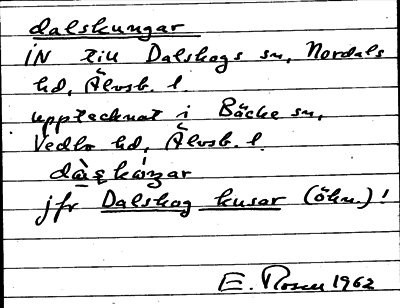 dalskungar
IN till Dalskogs sn, Nordals
hd, Älvsb. l.
upptecknat i Bäcke sn,
Vedbo hd, Älvsb. l.
jfr Dalskog kusar (öhn.)!
E. Rosen 1962